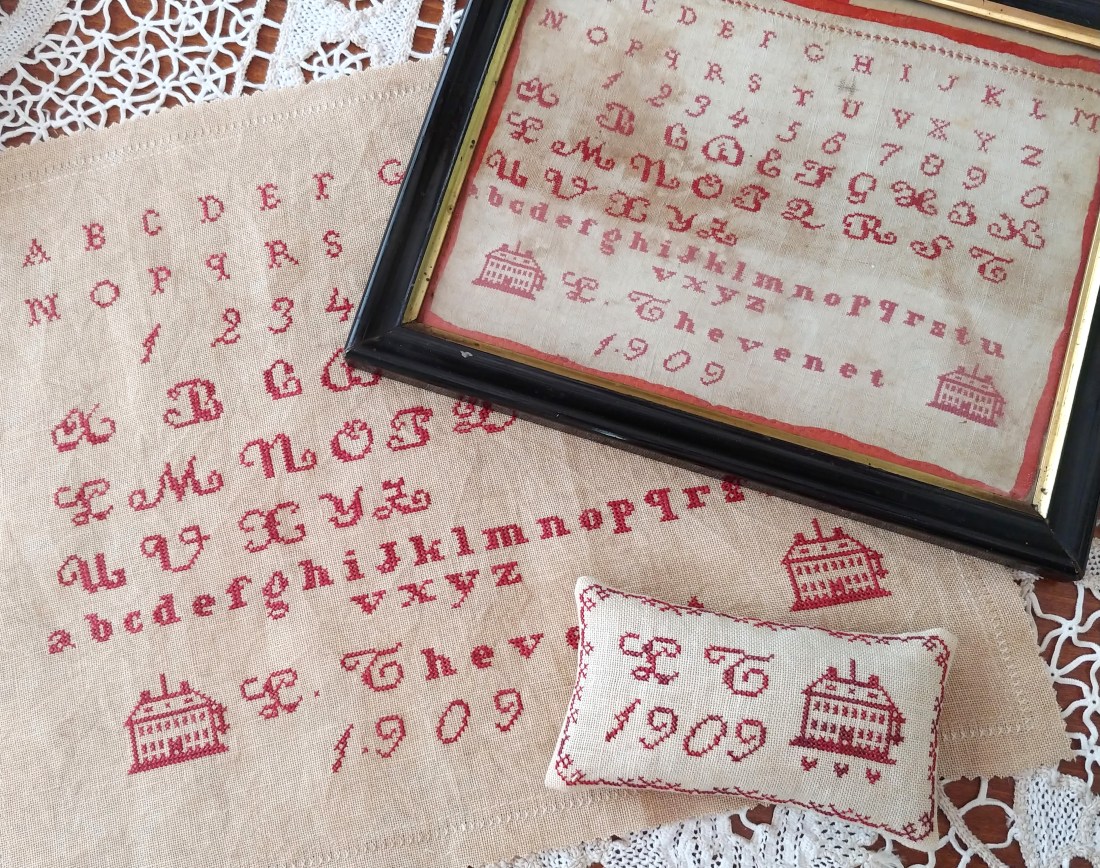 A B C D E F G
N O P q R S
1 2 3 4
A B C D
L M N O P Q
U V X Y Z
abcdefghijklmnopqrs
vxyz
L. Theve
1.909
C D E F G H I J K L M
N O P q R S T U V X Y Z
1 2 3 4 5 6 7 8 9 0
A B C D E F G H I K
L M N O P Q R S T
U V X Y Z
abcdefghijklmnopqrstu
vxyz
L. Thevenet
1.909
L T
1909